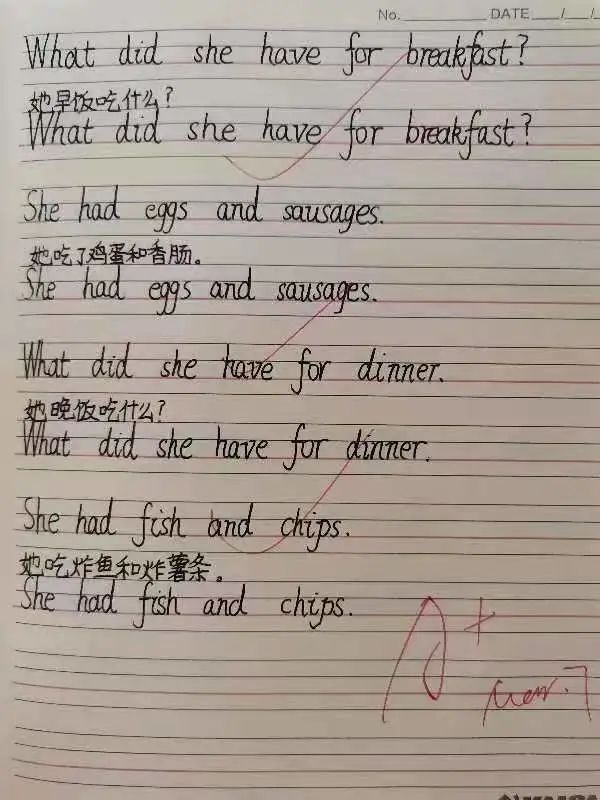 No. DATE / /
What did she have for breakfast?
她早饭吃什么?
What did she have for breakfast?
She had eggs and sausages.
她吃了鸡蛋和香肠。
She had eggs and sausages.
What did she have for dinner.
她晚饭吃什么?
What did she have for dinner.
She had fish and chips.
她吃炸鱼和炸薯条。
She had fish and chips.
A+